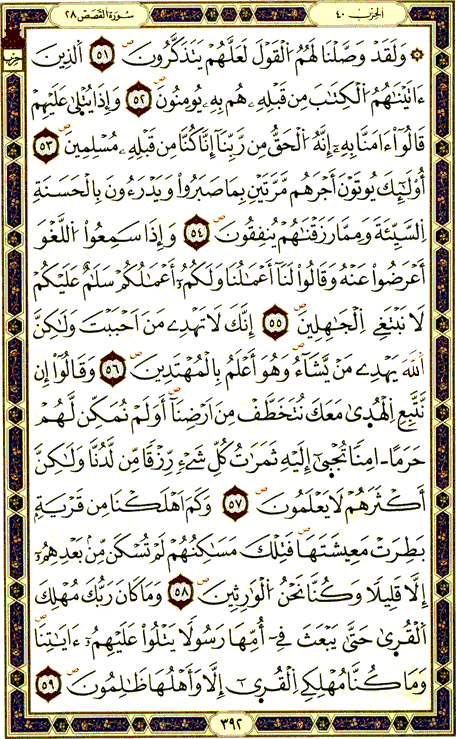 الحزب ٤٠
سورة القصص ٢٨
حزب
۞ وَلَقَدْ وَصَّلْنَا لَهُمُ اُ۬لْقَوْلَ لَعَلَّهُمْ يَتَذَكَّرُونَ ٥١ اَ۬لذِينَ
ءَاتَيْنَٰهُمُ اُ۬لْكِتَٰبَ مِن قَبْلِهِۦ هُم بِهِۦ يُومِنُونَ ٥٢ وَإِذَا يُتْلَىٰ عَلَيْهِمْ
قَالُوٓاْ ءَامَنَّا بِهِۦٓ إِنَّهُ اُ۬لْحَقُّ مِن رَّبِّنَآ إِنَّا كُنَّا مِن قَبْلِهِۦ مُسْلِمِينَ ٥٣
أُوْلَٰٓئِكَ يُوتَوْنَ أَجْرَهُم مَّرَّتَيْنِ بِمَا صَبَرُواْ وَيَدْرَءُونَ بِالْحَسَنَةِ
اِ۬لسَّيِّئَةَ وَمِمَّا رَزَقْنَٰهُمْ يُنفِقُونَ ٥٤ وَإِذَا سَمِعُواْ اُ۬للَّغْوَ
أَعْرَضُواْ عَنْهُ وَقَالُواْ لَنَآ أَعْمَٰلُنَا وَلَكُمُۥٓ أَعْمَٰلُكُمْ سَلَٰمٌ عَلَيْكُمْ
لَا نَبْتَغِے اِ۬لْجَٰهِلِينَ ٥٥ إِنَّكَ لَا تَهْدِے مَنَ اَحْبَبْتَ وَلَٰكِنَّ
اَ۬للَّهَ يَهْدِے مَنْ يَّشَآءُ وَهُوَ أَعْلَمُ بِالْمُهْتَدِينَ ٥٦ وَقَالُوٓاْ إِن
نَّتَّبِعِ اِ۬لْهُدَىٰ مَعَكَ نُتَخَطَّفْ مِنَ اَرْضِنَآ أَوَلَمْ نُمَكِّن لَّهُمْ
حَرَماً اٰمِناً تُجْبَىٰٓ إِلَيْهِ ثَمَرَٰتُ كُلِّ شَےْءٍ رِّزْقاً مِّن لَّدُنَّا وَلَٰكِنَّ
أَكْثَرَهُمْ لَا يَعْلَمُونَ ٥٧ وَكَمَ اَهْلَكْنَا مِن قَرْيَةِۢ
بَطِرَتْ مَعِيشَتَهَا فَتِلْكَ مَسَٰكِنُهُمْ لَمْ تُسْكَن مِّنۢ بَعْدِهِمُۥٓ
إِلَّا قَلِيلاً وَكُنَّا نَحْنُ اُ۬لْوَٰرِثِينَ ٥٨ وَمَا كَانَ رَبُّكَ مُهْلِكَ
اَ۬لْقُرَىٰ حَتَّىٰ يَبْعَثَ فِےٓ أُمِّهَا رَسُولاً يَتْلُواْ عَلَيْهِمُۥٓ ءَايَٰتِنَا
وَمَا كُنَّا مُهْلِكِے اِ۬لْقُرَىٰٓ إِلَّا وَأَهْلُهَا ظَٰلِمُونَ ٥٩
٣٩٢